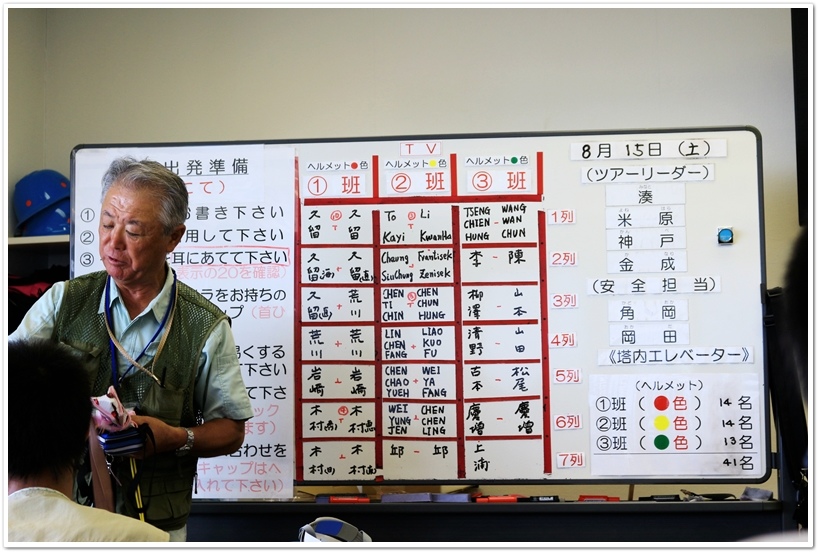 出発準備
て）
①
お書き下さい
②
用して下さい
③
耳にあてて下さい
表示の20を確認）
ラをお持ちの
プ（首ひ
易くする
下さい
下さ
ック
ます）
合わせを
キャップはへ
入れて下さい）
TV
ヘルメット●色
ヘルメット●色
ヘルメット●色
①班
②班
③班
久留 久留
To Kayi Li KwanHa
TSENG CHIEN HUNG - WANG WAN CHUN
1列
李 - 陳
2列
久留 + 荒川
CHEN TI CHIN CHEN CHUN HUNG
柳澤 - 山本
3列
荒川 + 荒川
LIN CHEN FANG LIAO KUO FU
清野 - 山田
4列
岩崎 + 岩崎
CHEN CHAO YUEH + WEI YA FANG
古本 - 松尾
5列
木村 木村
WEI YUNG JEN + CHEN CHEN LING
慶増 - 慶増
6列
木村 + 木村
邱 - 邱
上浦
7列
8月15日（土）
（ツアーリーダー）
湊
米原
神戸
金成
（安全担当）
角岡
岡田
《塔内エレベーター》
（ヘルメット）
①班（●色）14名
②班（●色）14名
③班（●色）13名
41名